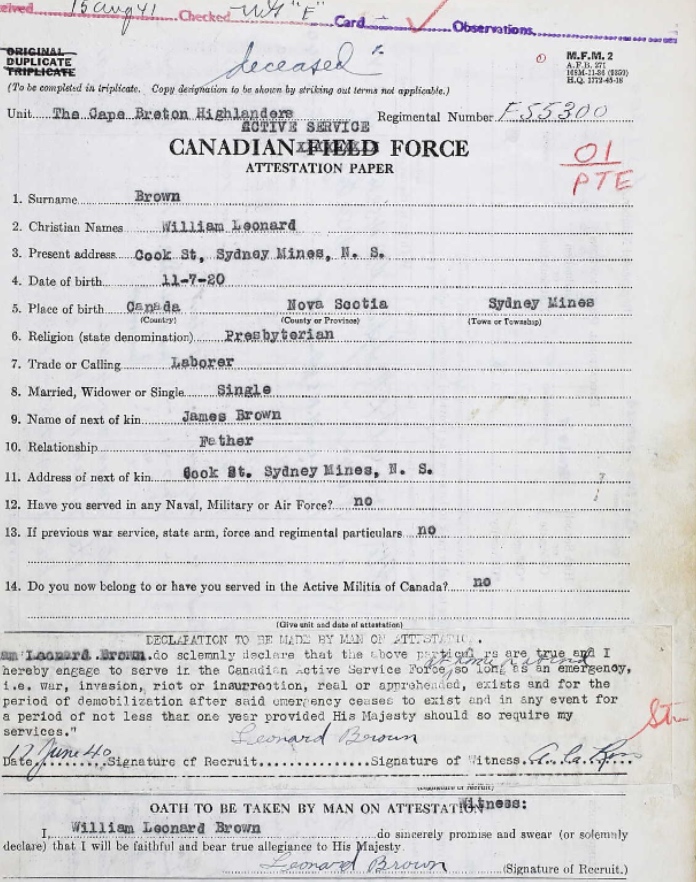 15 Aug 41 Checked "E" Card Observations
ORIGINAL
DUPLICATE
TRIPLICATE
deceased
M.F.M. 2
A.F.B. 271
H.Q. 1772-45-18
(To be completed in triplicate. Copy designation to be shown by striking out terms not applicable.)
Unit The Cape Breton Highlanders Regimental Number F55300
ACTIVE SERVICE
CANADIAN FIELD FORCE
01
PTE
ATTESTATION PAPER
1. Surname Brown
2. Christian Names William Leonard
3. Present address Cook St, Sydney Mines, N. S.
4. Date of birth 11-7-20
5. Place of birth Canada Nova Scotia Sydney Mines
(Country) (County or Province) (Town or Township)
6. Religion (state denomination) Presbyterian
7. Trade or Calling Laborer
8. Married, Widower or Single Single
9. Name of next of kin James Brown
10. Relationship Father
11. Address of next of kin Cook St. Sydney Mines, N. S.
12. Have you served in any Naval, Military or Air Force? no
13. If previous war service, state arm, force and regimental particulars no
14. Do you now belong to or have you served in the Active Militia of Canada? no
(Give unit and date of attestation)
DECLARATION TO BE MADE BY MAN ON ATTESTATION.
am Leonard Brown do solemnly declare that the above particulars are true and I
hereby engage to serve in the Canadian Active Service Force, so long as an emergency,
i.e. war, invasion, riot or insurrection, real or apprehended, exists and for the
period of demobilization after said emergency ceases to exist and in any event for
a period of not less than one year provided His Majesty should so require my
services."
Leonard Brown
Date 17 June 40 Signature of Recruit Signature of Witness
(Signature of Recruit)
OATH TO BE TAKEN BY MAN ON ATTESTATION
Witness:
I, William Leonard Brown do sincerely promise and swear (or solemnly
declare) that I will be faithful and bear true allegiance to His Majesty
Leonard Brown (Signature of Recruit.)